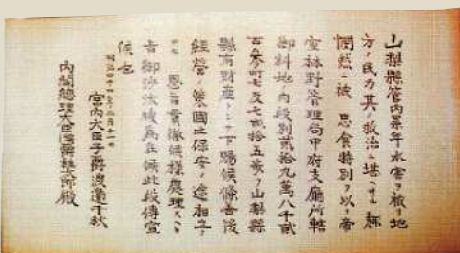 山梨縣管内累年水害ヲ被リ地
方ノ民力其ノ救治ニ堪ヘサル趣
憫然ニ被 思食特別ヲ以テ帝
室林野管理局甲府支廳所轄
御料地ノ内段別貳拾九萬八千貳
百參町七反七畝拾五歩ヲ山梨縣
縣有財産トシテ下賜候條善後
經營ノ策國土保安ノ途相立テ
以テ 恩旨貫徹候樣處理スヘキ
旨御沙汰被爲在候此段傳宣
候也
明治四十四年三月十一日
宮内大臣子爵渡邊千秋
内閣總理大臣侯爵桂太郎殿